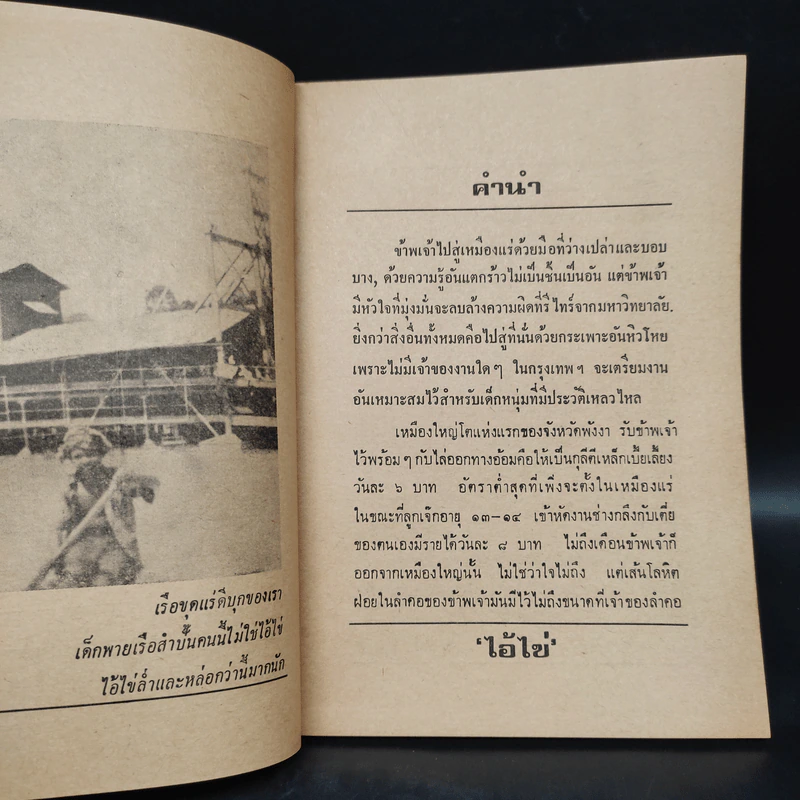 เรือขุดแร่ดีบุกของเรา
เด็กพายเรือสำปั้นคนนี้ไม่ใช่ไอ้ไข่
ไอ้ไข่ล่ำและหล่อกว่านี้มากนัก
คำนำ
ข้าพเจ้าไปสู่เหมืองแร่ด้วยมือที่ว่างเปล่าและบอบ
บาง, ด้วยความรู้อันแตกร้าวไม่เป็นชิ้นเป็นอัน แต่ข้าพเจ้า
มีหัวใจที่มุ่งมั่นจะลบล้างความผิดที่รีไทร์จากมหาวิทยาลัย.
ยิ่งกว่าสิ่งอื่นทั้งหมดคือไปสู่ที่นั่นด้วยกระเพาะอันหิวโหย
เพราะไม่มีเจ้าของงานใดๆ ในกรุงเทพฯ จะเตรียมงาน
อันเหมาะสมไว้สำหรับเด็กหนุ่มที่มีประวัติเหลวไหล
เหมืองใหญ่โตแห่งแรกของจังหวัดพังงา รับข้าพเจ้า
ไว้พร้อมๆ กับไล่ออกทางอ้อมคือให้เป็นกุลีตีเหล็กเบี้ยเลี้ยง
วันละ ๖ บาท อัตราต่ำสุดที่เพิ่งจะตั้งในเหมืองแร่
ในขณะที่ลูกเจ๊กอายุ ๑๓-๑๔ เข้าหัดงานช่างกลึงกับเตี่ย
ของตนเองมีรายได้วันละ ๘ บาท ไม่ถึงเดือนข้าพเจ้าก็
ออกจากเหมืองใหญ่นั้น ไม่ใช่ว่าใจไม่ถึง แต่เส้นโลหิต
ฝอยในลำคอของข้าพเจ้ามันมีไว้ไม่ถึงขนาดที่เจ้าของลำคอ
'ไอ้ไข่'